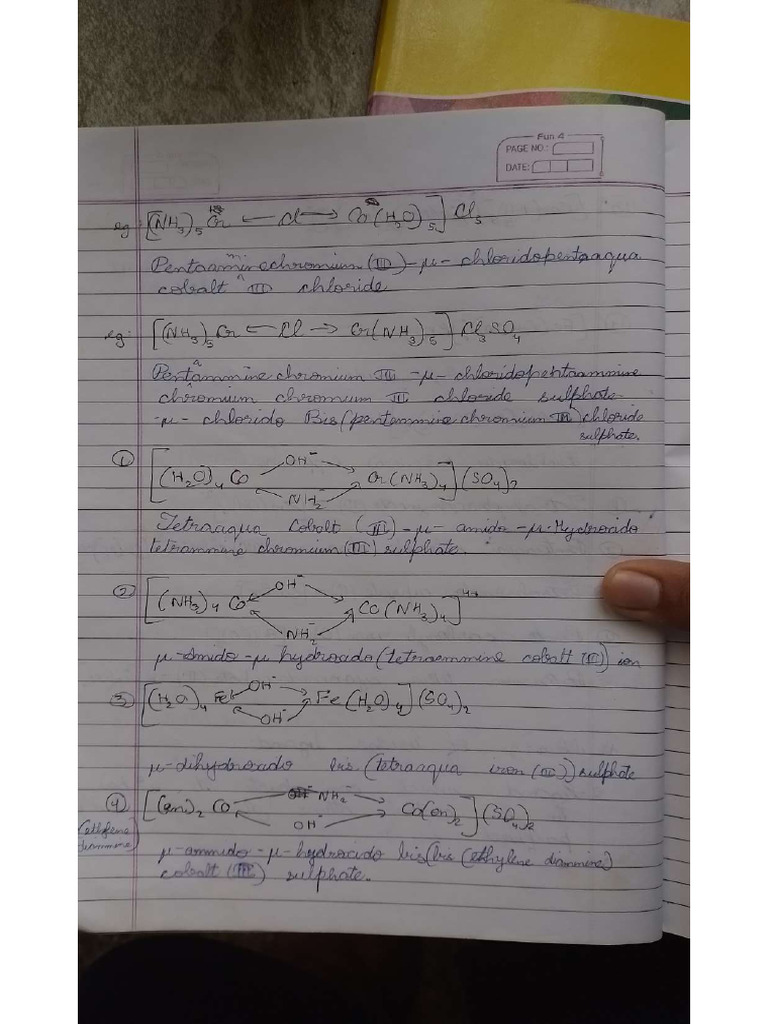 Fun 4
PAGE NO.:
DATE:
eg: [(NH3)5 Cr ← Cl → Co(H2O)5] Cl5
Pentaamminechromium (III)-μ-chloridopentaaqua
cobalt III chloride
eg: [(NH3)5 Cr ← Cl → Cr(NH3)5] Cl3SO4
Pentammine chromium III -μ- chloridopentaammine
chromium chromium III chloride sulphate
-μ- chlorido Bis(pentammine chromium III) chloride
sulphate.
① [(H2O)4 Co OH⁻ NH2⁻ Cr(NH3)4] (SO4)2
Tetraaqua Cobalt (III)-μ- amido -μ-Hydroxido
tetrammine chromium (III) sulphate.
② [(NH3)4 Co OH⁻ NH2⁻ CO(NH3)4]4+
μ-Amido-μ hydroxido(tetraammine cobalt (III) ion
③ [(H2O)4 Fe OH⁻ OH⁻ Fe(H2O)4] (SO4)2
μ-dihydroxido bis (tetraaqua iron (III)) sulphate
④ [(en)2 Co NH2⁻ OH⁻ Co(en)2] (SO4)2
(ethylene
diammine)
μ-ammido-μ-hydroxido bis(bis (ethylene diammine)
cobalt (III) sulphate.